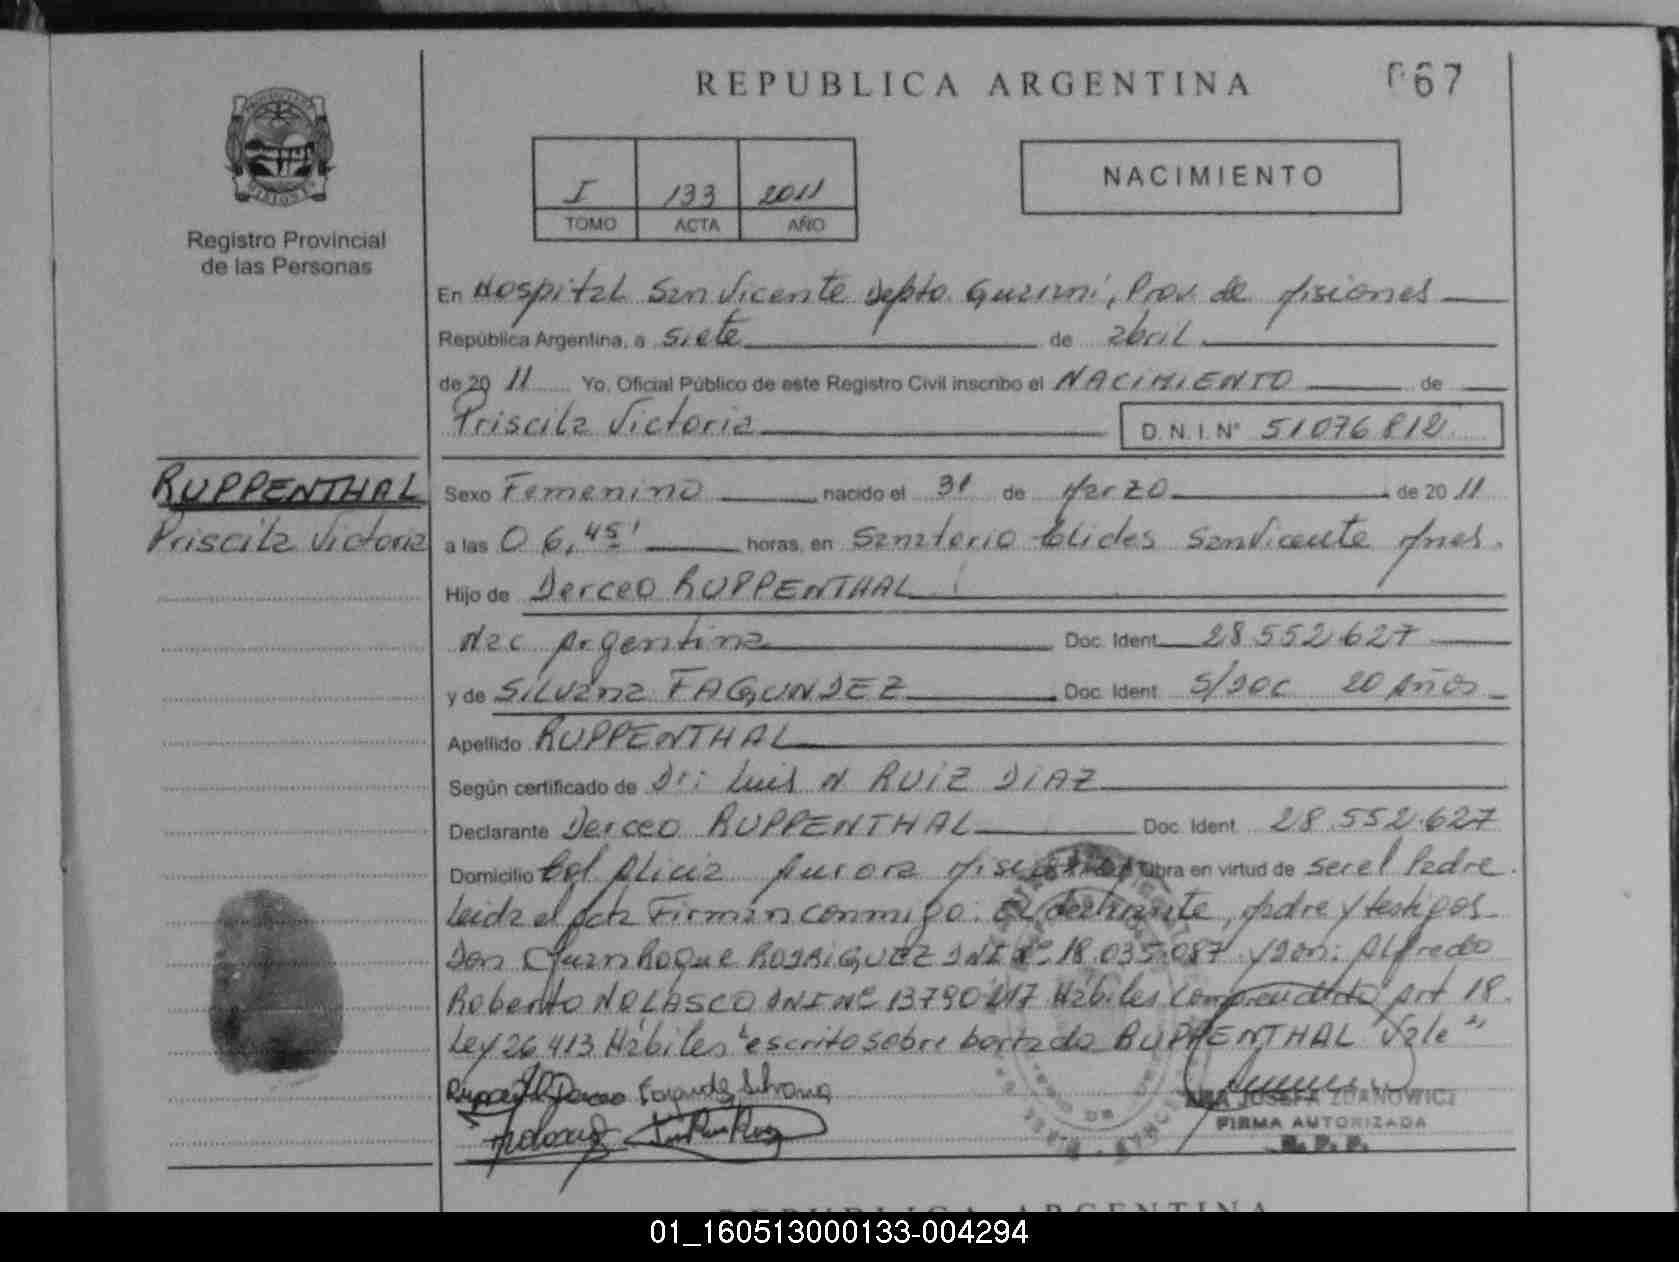 REPUBLICA ARGENTINA
067
Registro Provincial
de las Personas
I 133 2011
TOMO ACTA AÑO
NACIMIENTO
En Hospital San Vicente Depto. Guarani, Prov. de Misiones
República Argentina, a siete de abril
de 20 11 Yo, Oficial Público de este Registro Civil inscribo el NACIMIENTO de
Priscila Victoria D.N.I.N° 51076812
RUPPENTHAL
Priscila Victoria
Sexo Femenino nacido el 31 de Marzo de 20 11
a las 06,45' horas, en Sanatorio Elides San Vicente Mnes.
Hijo de Derceo RUPPENTHAL
Nac Argentina Doc. Ident. 28.552.627
y de Silvana FAGUNDEZ Doc. Ident. S/DOC 20 Años
Apellido RUPPENTHAL
Según certificado de Dr: Luis N RUIZ DIAZ
Declarante Derceo RUPPENTHAL Doc. Ident. 28.552.627
Domicilio Col Alicia Aurora Obra en virtud de ser el Padre.
Leida el Acta Firman conmigo: El declarante, Madre y testigos
Don Juan Roque RODRIGUEZ DNI N° 18.035.087 y Don: Alfredo
Roberto NOLASCO DNI N° Habiles Comprendido Art 18.
Ley 26.413 Habiles "escrito sobre borrado RUPPENTHAL Vale"
Fagundez Silvana
ANA JOSEFA ZDANOWICZ
FIRMA AUTORIZADA
R. P. P.
REPUBLICA ARGENTINA
01_160513000133-004294